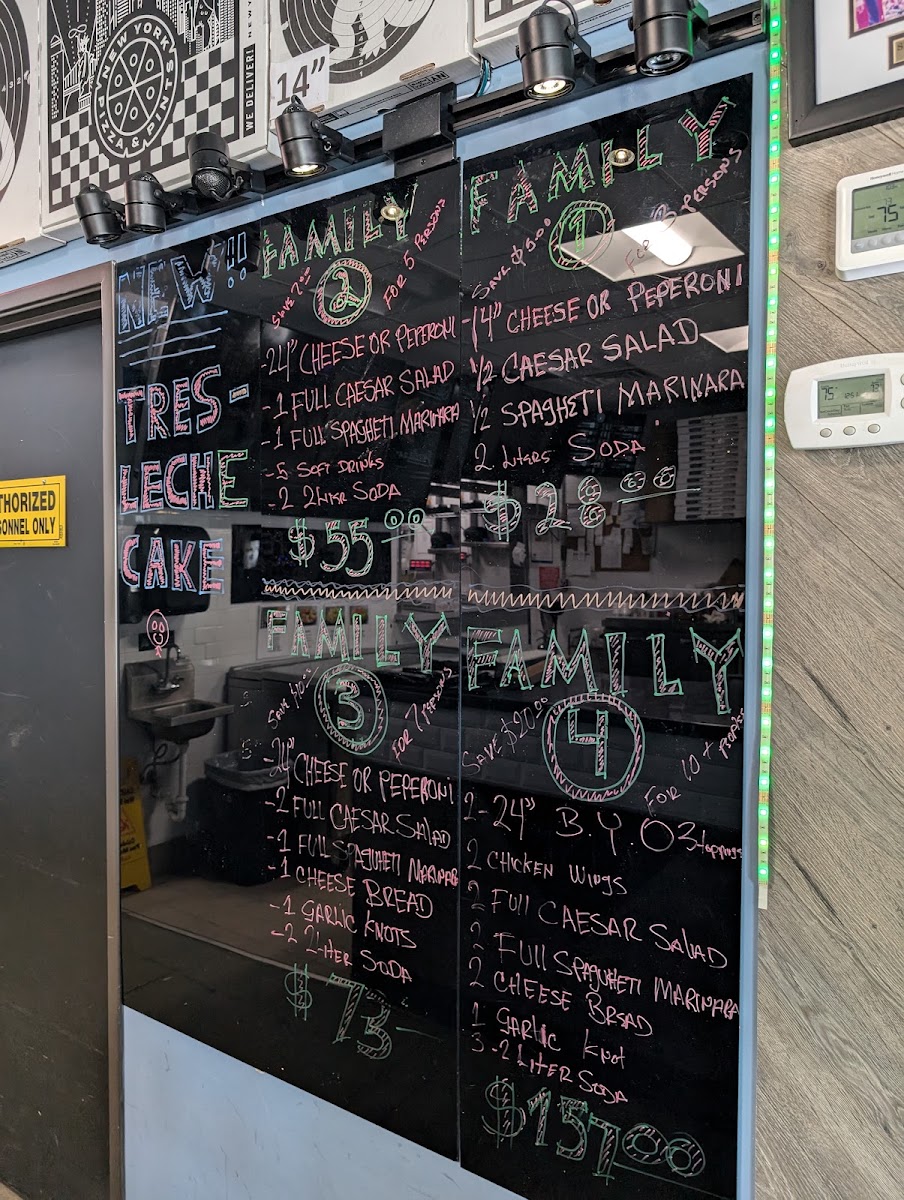 NEW YORK
PIZZA & PINTS
WE DELIVER!
14"
NEW!!
TRES-
LECHE
CAKE
THORIZED
SONNEL ONLY
FAMILY
2
SAVE 7.00
FOR 5 PERSONS
-24" CHEESE OR PEPERONI
-1 FULL CAESAR SALAD
-1 FULL SPAGHETI MARINARA
-5 SOFT DRINKS
-2 2LITER SODA
$55.00
FAMILY
1
SAVE $5.00
FOR 3 PERSONS
-14" CHEESE OR PEPERONI
1/2 CAESAR SALAD
1/2 SPAGHETI MARINARA
2 LITERS SODA
$28.00
FAMILY
3
SAVE $10.00
FOR 7 PERSONS
-24" CHEESE OR PEPERONI
-2 FULL CAESAR SALAD
-1 FULL SPAGUHETI MARINARA
-1 CHEESE BREAD
-1 GARLIC KNOTS
-2 2LITER SODA
$73-
FAMILY
4
SAVE $20.00
FOR 10+ PROPLE
2-24" B.Y.O 3 toppings
2 CHICKEN WINGS
2 FUll CAESAR SAlAD
2 FUll SPAGUHETI MARINARA
2 CHEESE BREAD
1 GARLIC KNOT
3-2 LITER SODA
$157.00
75
75